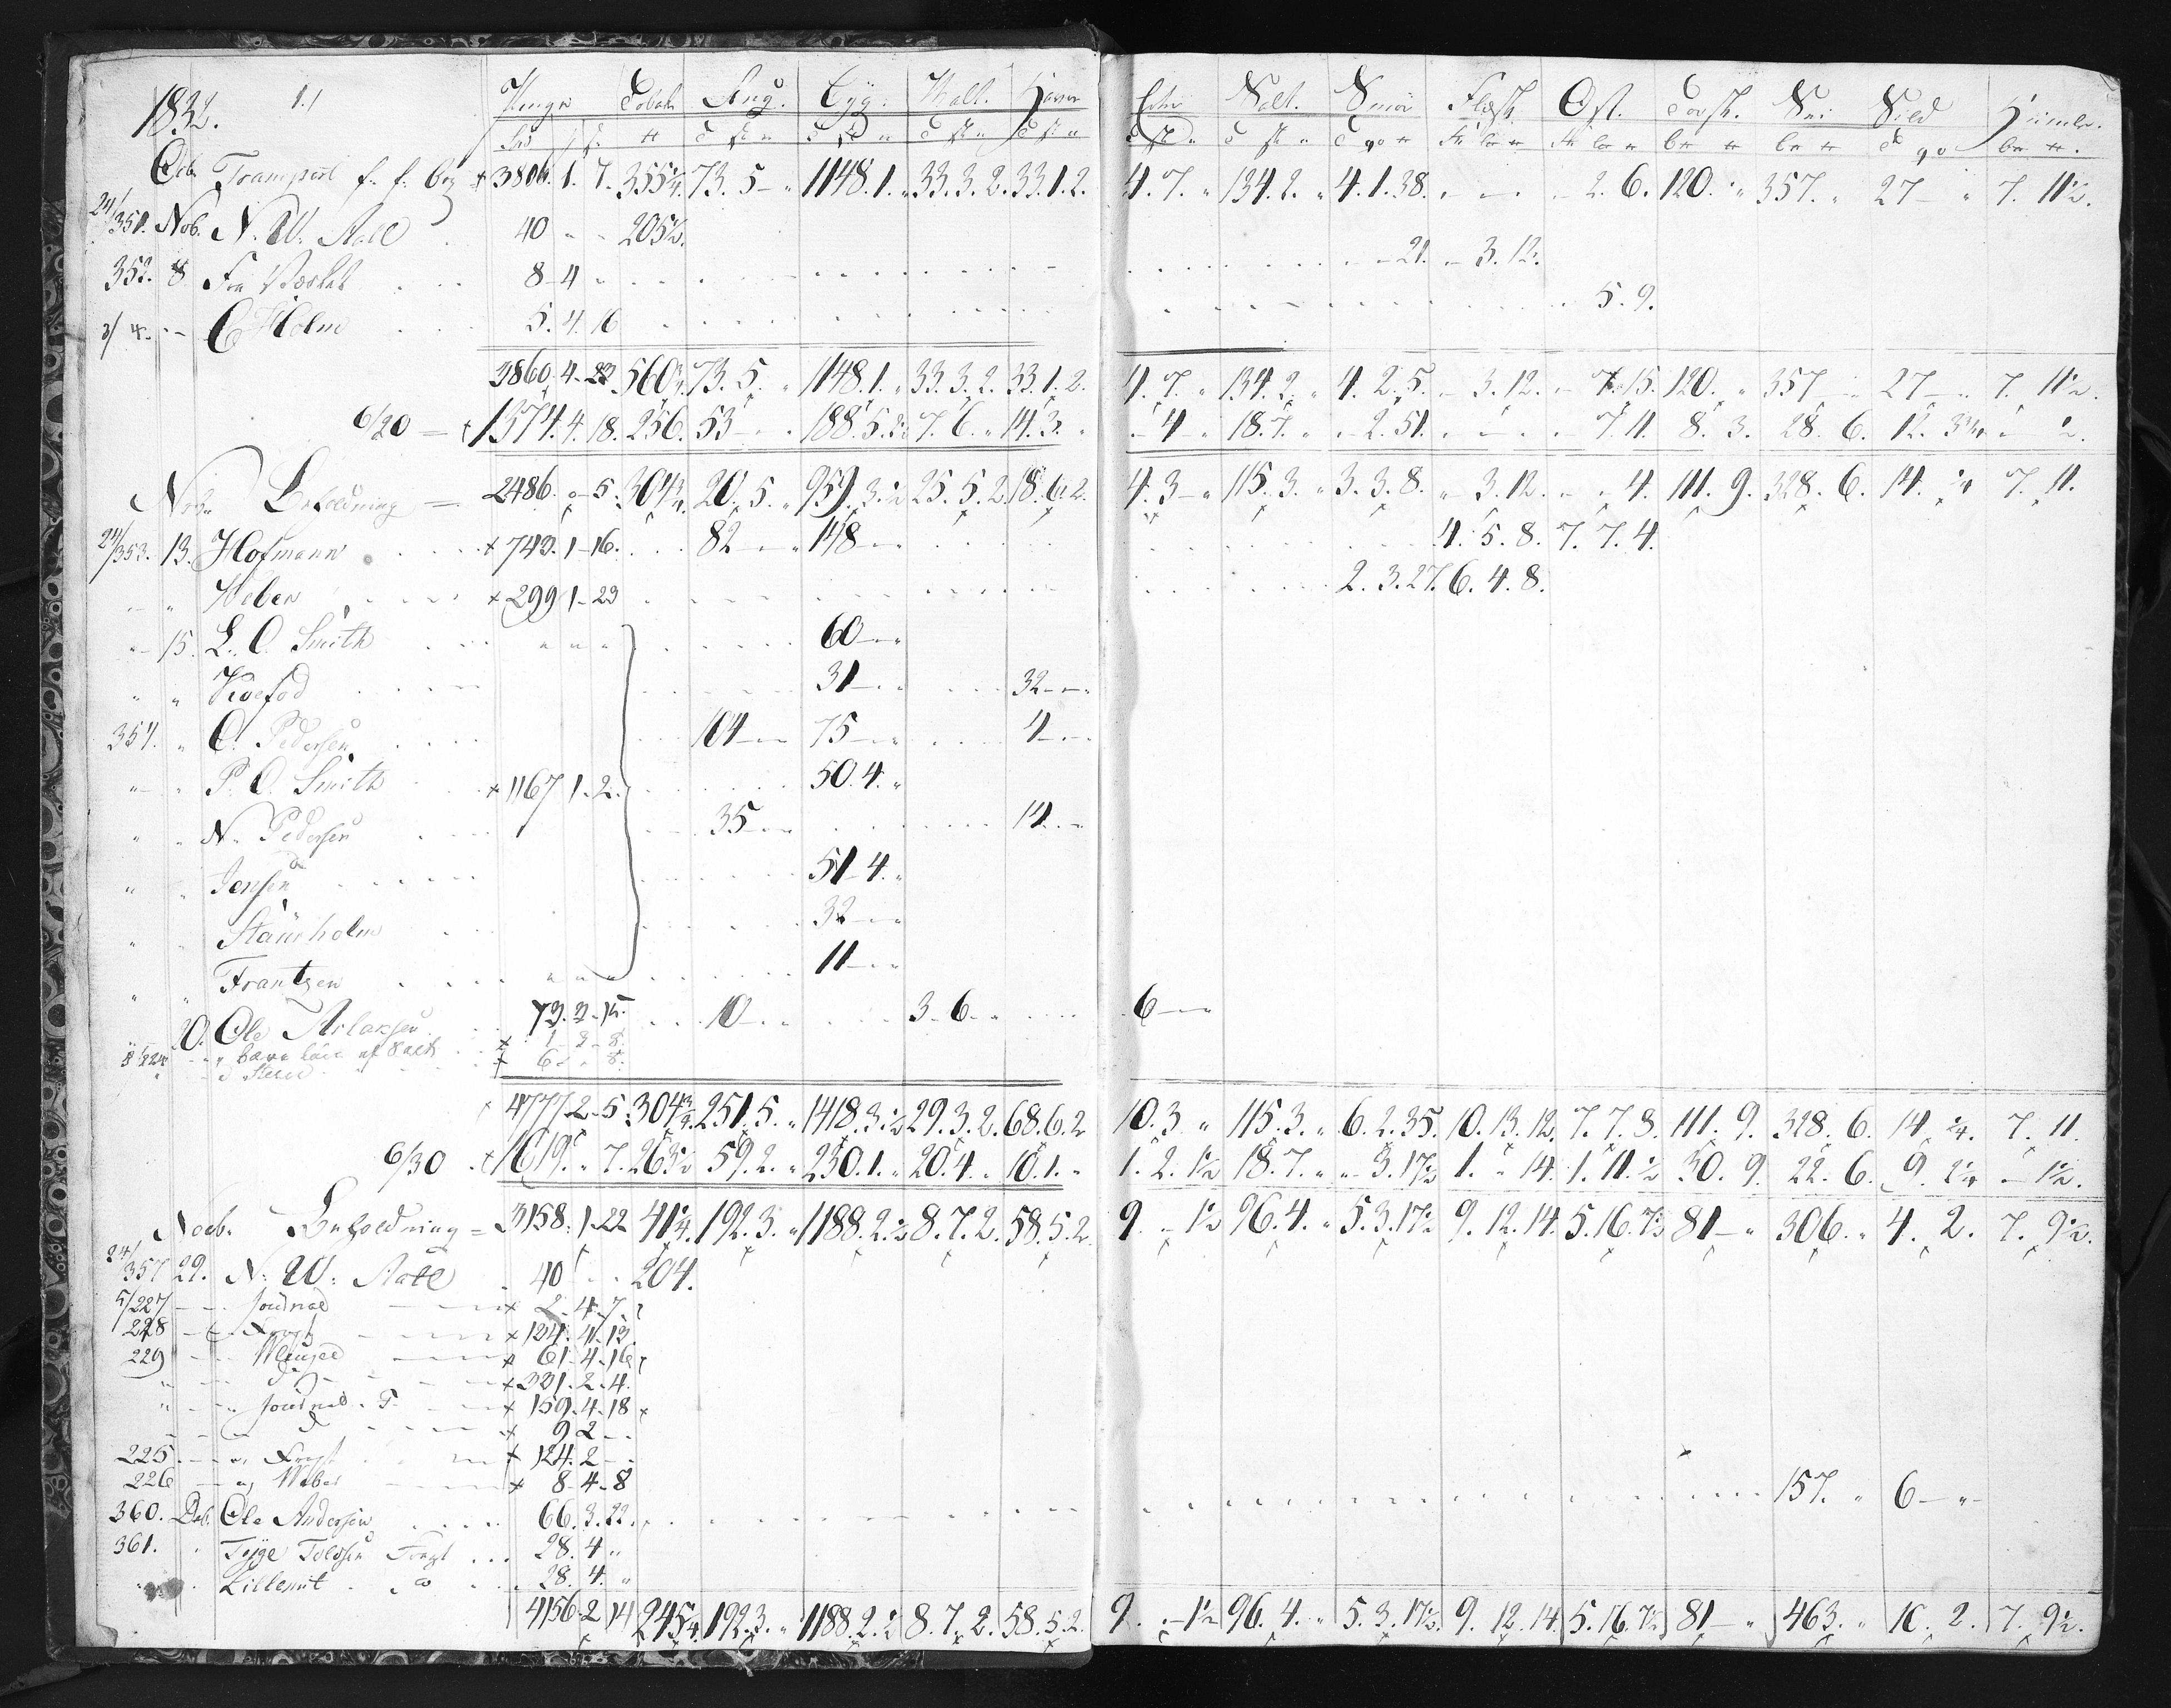 1832. 1.1 Penge Tobak Rug. Byg. Malt. Havre Erter Salt. Smør Flæsk. Ost. Torsk. Sei Sild Humle.
Octr. Transport f. f. Bog 3806. 1. 7. 355¼. 73. 5 - " 1148. 1. " 33. 3. 2. 33. 1. 2. 4. 7. " 134. 2. " 4. 1. 38. " - - - 2. 6. 120. " 357. " 27 - " 7. 11½.
24/351. Nob. N. W. Aall 40 - - 205½.
352. 8 8 - 4 - - 21. - 3. 12.
3/4. - - C Holm 5. 4. 16 5. 9.
3860. 4. 23. 560¾. 73. 5. " 1148. 1. " 33. 3. 2. 33. 1. 2. 4. 7. " 134. 2. " 4. 2. 5. - 3. 12. - 7. 15. 120. " 357 - " 27 - " 7. 11½.
6/20 = 1374. 4. 18. 256. 53 - " 188. 5. 7. 6. " 14. 3. " - 4 - " 18. 7. " - 2. 51. " - " - 7. 11. 8. 3. 28. 6. 12. 3¾ " - ½.
Nob. Beholdning = 2486. " - 5. 304¾. 20. 5. " 959. 3. ½ 25. 5. 2. 18. 6. 2. 4. 3 - " 115. 3. " 3. 3. 8. " - 3. 12. - " 4. 111. 9. 328. 6. 14. ¼ 7. 11.
24/353. 13. Hofmann 743. 1 - 16. 82 - " 148 - " 4. 5. 8. 7. 7. 4.
- " Weber 299 1 - 23 2. 3. 27. 6. 4. 8.
- 15. L. C. Smith " " " 60 - "
" " Koefod 31 - " 32 - "
354. " C. Pedersen 104 - " 75 - " 4 - "
" " P. C. Smith 1167 1 - 2. 50. 4. "
" " N. Pedersen 35 - " 14 - "
" " Jensen 51 - 4. "
" " Staurholm 32 - "
" " Frantzen " " " 11 - "
20. Ole Aslaksen 73. 3 - 15. 10 - " 3 - 6. " 6 - "
af Salt 1 - 3 - 8.
6 - " 8.
4777. 2 - 5. 304¾. 251. 5. " 1418. 3. ½ 29. 3. 2. 68. 6. 2 10. 3. " 115. 3. " 6. 2. 35. 10. 13. 12. 7. 7. 8. 111. 9. 328. 6. 14. ¼. 7. 11.
6/30 1619. " 7. 263½ 59. 2. " 230. 1. " 20. 4. " 10. 1. " 1. 2. 1½ 18. 7. " " 3. 17½ 1. " 14. 1. 11. ½ 30. 9. 22. 6. 9. 2¼ - 1½.
Nob. Beholdning = 3158. 1 - 22 41¼. 192. 3. " 1188. 2. ½ 8. 7. 2. 58. 5. 2. 9. - 1½ 96. 4. " 5. 3. 17½ 9. 12. 14. 5. 16. 7½ 81 - " 306. " 4. 2. 7. 9½.
24/357 29. N. W. Aall 40 - - 204.
5/227 - - Journal 2. 4. 7.
228 - - 124. 4. 13.
229 - - 61 - 4 - 16
" - - do 331. 2. 4.
" - - Journal 159. 4. 18
- - do 9 2 - -
225 - - 124. 2 - -
226 - - Weber 8 - 4 - 8
360. Deb. Ole Andersen 66. 3. 22. 157. " 6 - "
361. " 28. 4 "
" " do 28. 4. "
4156. 2 14 245¼. 192. 3. " 1188. 2. ½ 8. 7. 2. 58. 5. 2. 9. - 1½ 96. 4. " 5. 3. 17½. 9. 12. 14. 5. 16. 7½ 81 - " 463. " 10. 2. 7. 9½.